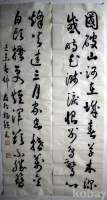 國破山河在城春草木深
感時花濺淚恨別鳥驚心
烽火連三月家書抵萬金
白頭搔更短渾欲不勝簪
kobay